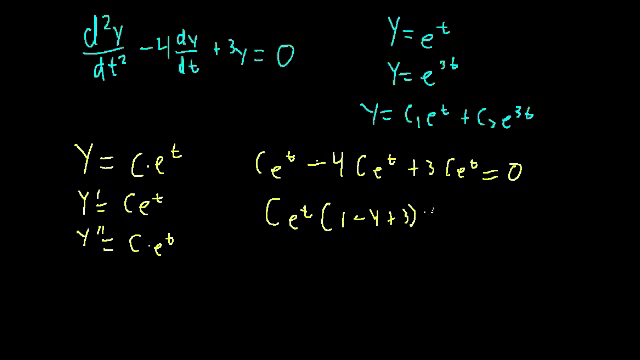 d²y/dt² - 4 dy/dt + 3y = 0
y = e^t
y = e^3t
y = C₁e^t + C₂e^3t
y = C·e^t
y' = Ce^t
y'' = C·e^t
Ce^t - 4Ce^t + 3Ce^t = 0
Ce^t(1-4+3)